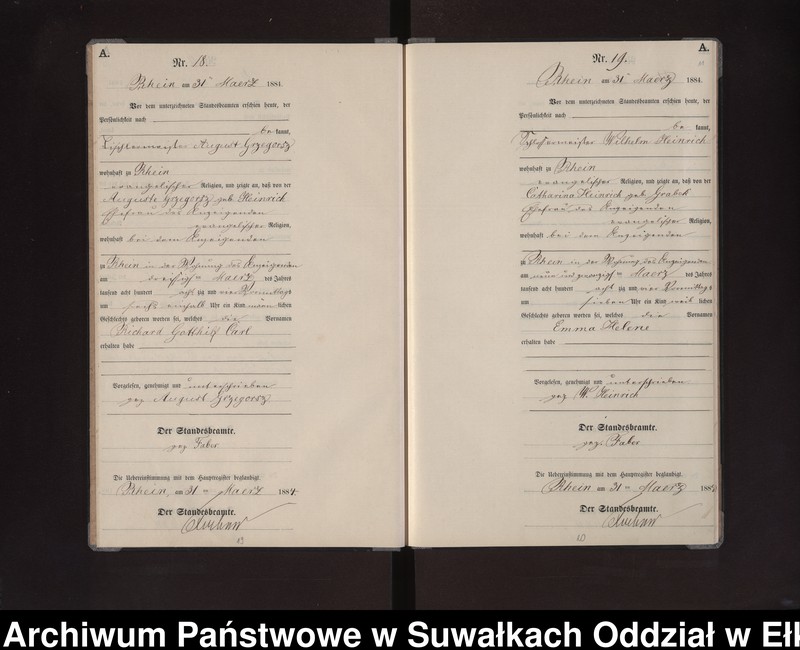 A.
Nr. 18.
Rhein am 31ten Maerz 1884.
Vor dem unterzeichneten Standesbeamten erschien heute, der
Persönlichkeit nach
be kannt,
Tischlermeister August Grzegorz
wohnhaft zu Rhein
evangelischer Religion, und zeigte an, daß von der
Auguste Grzegorz geb. Heinrich
Ehefrau des Anzeigenden
evangelischer Religion,
wohnhaft bei dem Anzeigenden
zu Rhein in der Wohnung des Anzeigenden
am dreißigsten Maerz des Jahres
tausend acht hundert acht zig und vier Vormittags
um sechs einhalb Uhr ein Kind männ lichen
Geschlechts geboren worden sei, welches die Vornamen
Richard Gotthilf Carl
erhalten habe
Vorgelesen, genehmigt und unterschrieben
gez August Grzegorz
Der Standesbeamte.
gez Faber
Die Uebereinstimmung mit dem Hauptregister beglaubigt.
Rhein, am 31ten Maerz 1884.
Der Standesbeamte.
19
A.
Nr. 19.
Rhein am 31ten Maerz 1884.
Vor dem unterzeichneten Standesbeamten erschien heute, der
Persönlichkeit nach
be kannt,
Wilhelm Heinrich
wohnhaft zu Rhein
evangelischer Religion, und zeigte an, daß von der
Catharina Heinrich geb. Grabek
Ehefrau des Anzeigenden
evangelischer Religion,
wohnhaft bei dem Anzeigenden
zu Rhein in der Wohnung des Anzeigenden
am neun und zwanzigsten Maerz des Jahres
tausend acht hundert acht zig und vier Vormittags
um sieben Uhr ein Kind weib lichen
Geschlechts geboren worden sei, welches die Vornamen
Emma Helene
erhalten habe
Vorgelesen, genehmigt und unterschrieben
gez W. Heinrich
Der Standesbeamte.
gez. Faber
Die Uebereinstimmung mit dem Hauptregister beglaubigt.
Rhein am 31ten Maerz 1884
Der Standesbeamte.
20
Archiwum Państwowe w Suwałkach Oddział w Ełk